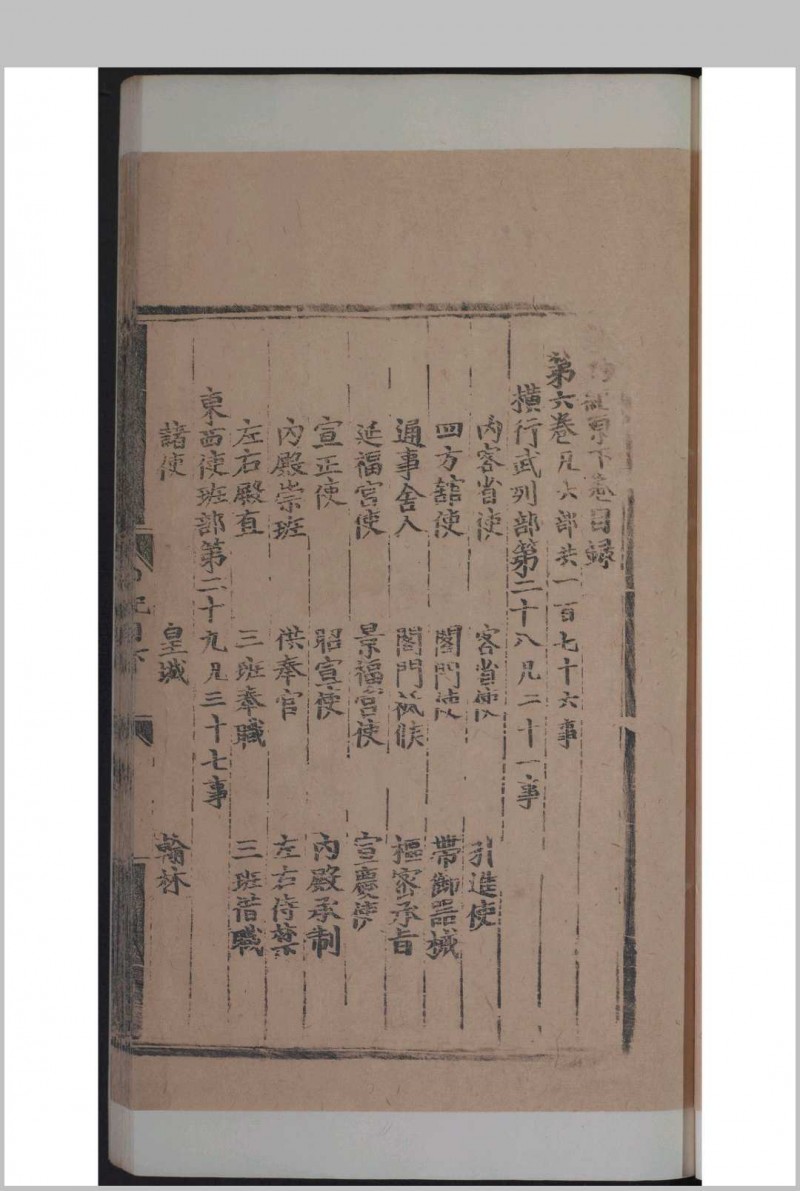 紀原下卷目録
第六卷凡六部共一百七十六事
橫行武列部第二十八凡二十一事
內客省使 客省使 引進使
四方舘使 閤門使 帶御器械
通事舎人 閤門祗候 樞密承旨
延福宮使 景福宮使 宣慶使
宣正使 昭宣使 內殿承制
內殿崇班 供奉官 左右侍禁
左右殿直 三班奉職 三班借職
東西使班部第二十九凡三十七事
諸使 皇城 翰林